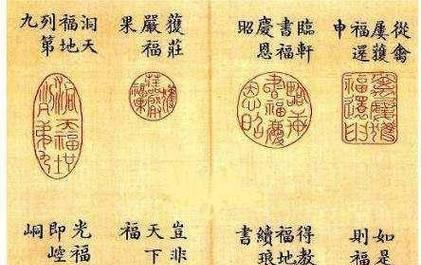 從禽
屢獲
福還
申
臨軒
書福
慶恩
昭
獲莊
嚴福
果
洞天
福地
列第
九
如是
則福
得教
福地
續琅
書
豈非
天下
福
光福
即崆
峒